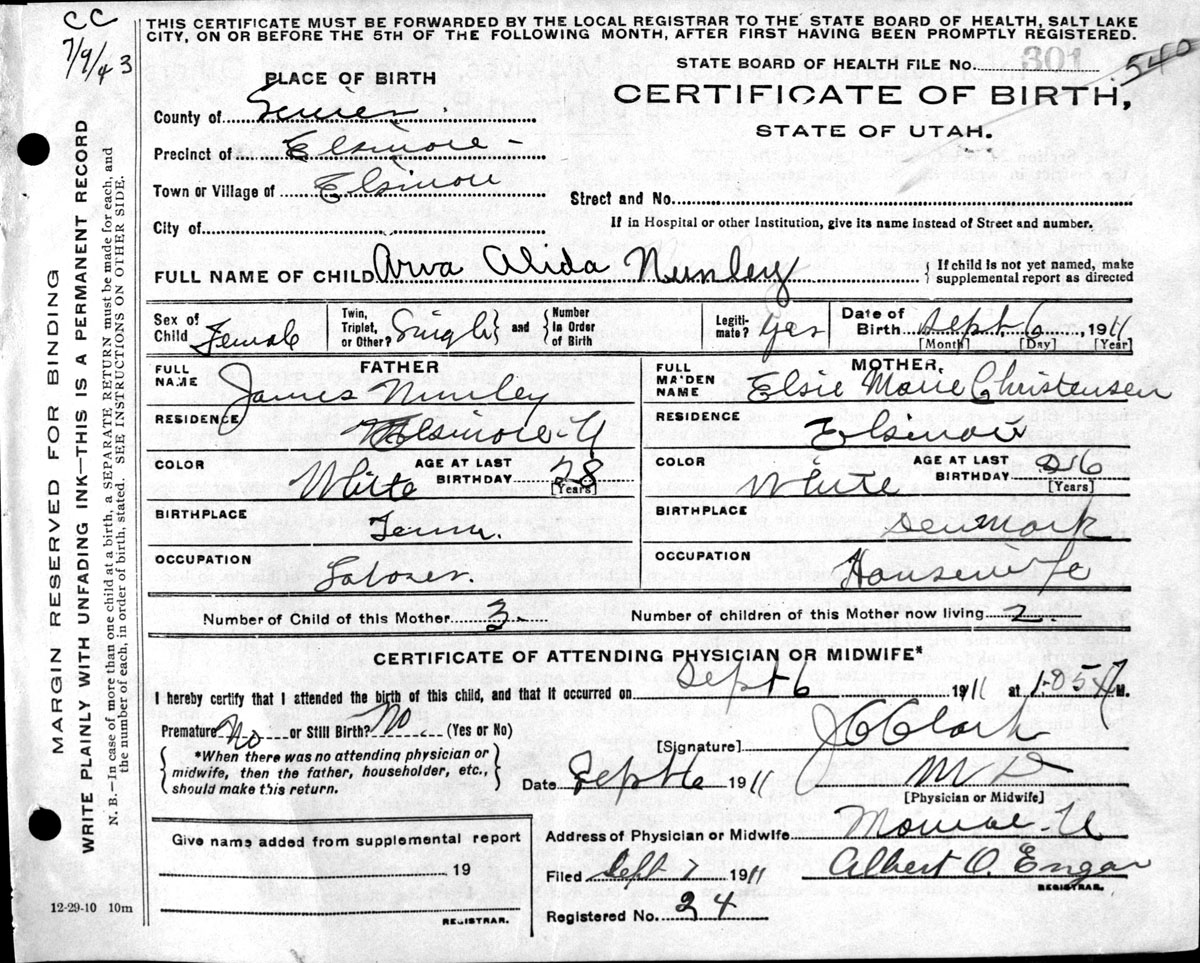 CC
7/9/43
THIS CERTIFICATE MUST BE FORWARDED BY THE LOCAL REGISTRAR TO THE STATE BOARD OF HEALTH, SALT LAKE
CITY, ON OR BEFORE THE 5TH OF THE FOLLOWING MONTH, AFTER FIRST HAVING BEEN PROMPTLY REGISTERED.
STATE BOARD OF HEALTH FILE NO. 301 540
PLACE OF BIRTH
CERTIFICATE OF BIRTH,
STATE OF UTAH.
County of Sevier
Precinct of Elsinore
Town or Village of Elsinore
Street and No.
City of
If in Hospital or other Institution, give its name instead of Street and number.
FULL NAME OF CHILD Arva Alida Nunley { If child is not yet named, make supplemental report as directed
Sex of Child Female
Twin, Triplet, or Other? Single and { Number in Order of Birth
Legitimate? Yes
Date of Birth Sept 6, 1911
[Month] [Day] [Year]
FATHER
FULL NAME James Nunley
RESIDENCE Elsinore-U
COLOR White AGE AT LAST BIRTHDAY 28 [Years]
BIRTHPLACE Tenn.
OCCUPATION Laborer.
MOTHER,
FULL MAIDEN NAME Elsie Marie Christensen
RESIDENCE Elsinore
COLOR White AGE AT LAST BIRTHDAY 26 [Years]
BIRTHPLACE Denmark
OCCUPATION Housewife
Number of Child of this Mother 3 Number of children of this Mother now living 2
CERTIFICATE OF ATTENDING PHYSICIAN OR MIDWIFE*
I hereby certify that I attended the birth of this child, and that it occurred on Sept 6 1911 at M.
Premature No or Still Birth? No. (Yes or No)
{ *When there was no attending physician or midwife, then the father, householder, etc., should make this return. }
[Signature] J C Clark
Date Sept 6 1911 M D
[Physician or Midwife]
Give name added from supplemental report
19
REGISTRAR.
Address of Physician or Midwife Monroe-U
Filed Sept 7 1911 Albert O. Engar
REGISTRAR.
Registered No. 24
12-29-10 10m
MARGIN RESERVED FOR BINDING
WRITE PLAINLY WITH UNFADING INK—THIS IS A PERMANENT RECORD
N. B.—In case of more than one child at a birth, a SEPARATE RETURN must be made for each, and
the number of each, in order of birth, stated. SEE INSTRUCTIONS ON OTHER SIDE.